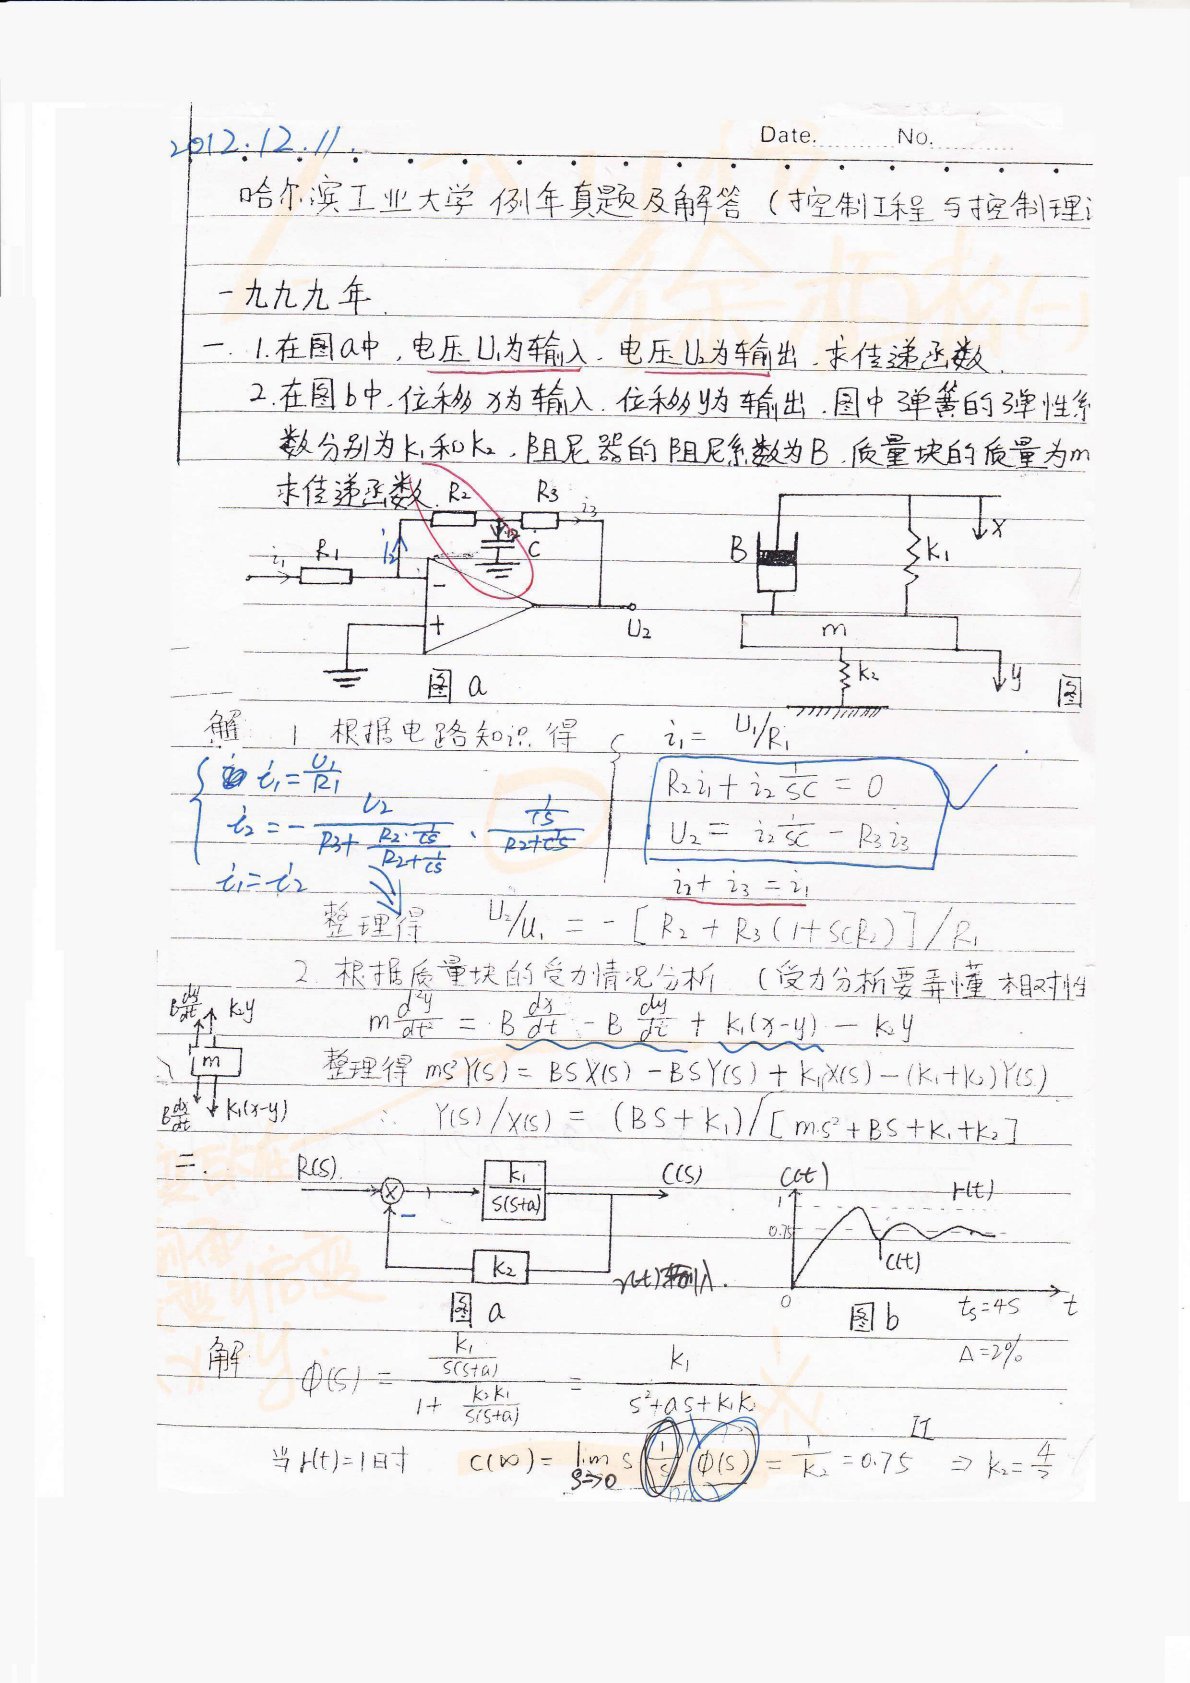 Date. No.
2012.12.11.
哈尔滨工业大学 例年真题及解答（控制工程与控制理
一九九九年
一. 1.在图a中, 电压U₁为输入, 电压U₂为输出, 求传递函数
2.在图b中, 位移x为输入, 位移y为输出, 图中弹簧的弹性系
数分别为k₁和k₂, 阻尼器的阻尼系数为B, 质量块的质量为m
求传递函数.
R₂ R₃ i₃
i₁ R₁ i₂ C
- +
U₂
图 a
B k₁ x
m
k₂ y
图
解 1 根据电路知识得 i₁ = U₁/R₁
i₁ = U₁/R₁
R₂i₁ + i₂ 1/SC = 0
U₂ = i₂ 1/SC - R₃i₃
i₂ + i₃ = i₁
i₂ = - U₂/(R₃ + (R₂·1/CS)/(R₂+1/CS)) · (1/CS)/(R₂+1/CS)
i₁ = i₂
整理得 U₂/U₁ = -[R₂ + R₃(1+SCR₂)]/R₁
2. 根据质量块的受力情况分析 (受力分析要弄懂 相对性
B dy/dt k₂y
m
B dx/dt k₁(x-y)
m d²y/dt² = B dx/dt - B dy/dt + k₁(x-y) - k₂y
整理得 ms²Y(s) = BSX(s) - BSY(s) + k₁X(s) - (k₁+k₂)Y(s)
∴ Y(s)/X(s) = (BS+k₁)/[ms²+BS+k₁+k₂]
二.
R(s) k₁/S(S+a) C(s)
-
k₂
r(t)输入.
图 a
C(t) r(t)
1
0.75
C(t)
0 ts=4S t
图 b
Δ=2%
解 Φ(s) = (k₁/S(S+a))/(1 + k₂k₁/S(S+a)) = k₁/(S²+aS+k₁k₂)
当 r(t)=1时 C(∞) = lim S→0 S 1/S Φ(s) = 1/k₂ = 0.75 ⇒ k₂ = 4/3